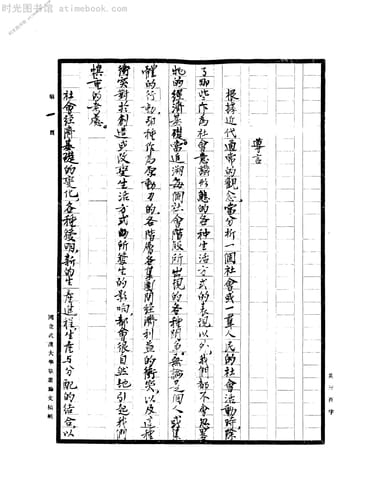 时光图书馆 · atimebook.com
導言
根據近代通常的觀念,當分析一個社會或一羣人民的社會活動時,除
了那些作為社會意識形態的各種生活方式的表現以外,我們都不會忽畧
牠的經濟基礎。當追溯每個社會階段所出現的各種關係,無論是個人或集
體的行動,和種作為原動力的,各階層各集團間經濟利益的衝突,以及這種
衝突對於創造或改變生活方式動所發生的影響,都會很自然地引起我們
慎重的考慮。
社會經濟基礎的變化,各種發明,新的生產這樣生產與分配的結合,以
編 一 頁
國立武漢大學畢業論文稿紙